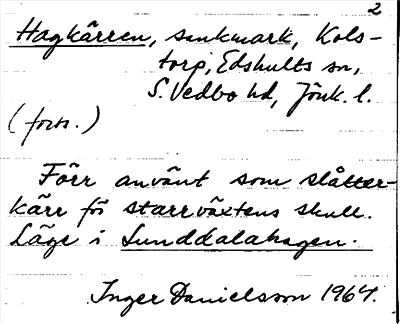 2
Hagkärren, sankmark, Kols-
torp, Edshults sn,
S. Vedbo hd, Jönk. l.
(forts.)
Förr använt som slåtter-
kärr för starrväxtens skull.
Läge i Sunddalahagen.
Inger Danielsson 1967.